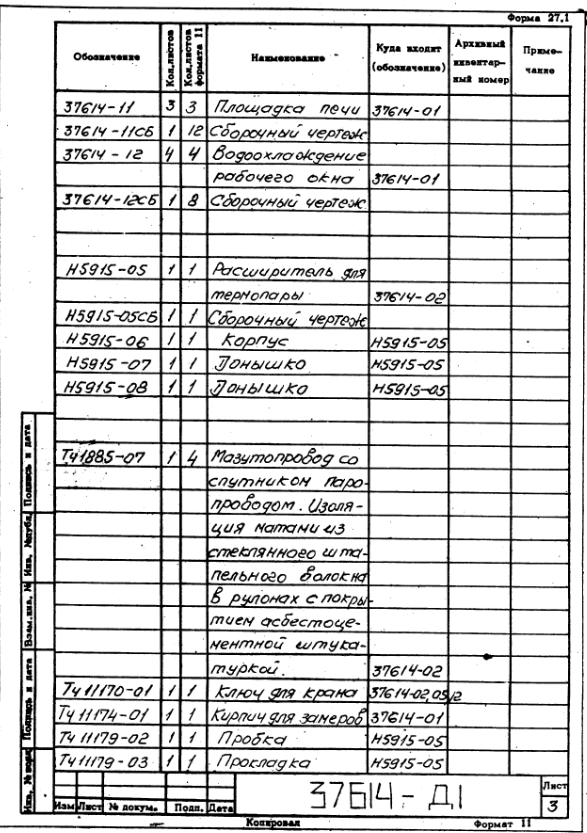 Форма 27.1
Обозначение Кол.листов Кол.листов формата 11 Наименование Куда входит (обозначение) Архивный инвентарный номер Примечание
37614-11 3 3 Площадка печи 37614-01
37614-11СБ 1 12 Сборочный чертеж
37614-12 4 4 Водоохлаждение
рабочего окна 37614-01
37614-12СБ 1 8 Сборочный чертеж
Н5915-05 1 1 Расширитель для
термопары 37614-02
Н5915-05СБ 1 1 Сборочный чертеж
Н5915-06 1 1 Корпус Н5915-05
Н5915-07 1 1 Донышко Н5915-05
Н5915-08 1 1 Донышко Н5915-05
Т41885-07 1 4 Мазутопровод со
спутником паро-
проводом. Изоля-
ция матами из
стеклянного шта-
пельного волокна
в рулонах с покры-
тием асбестоце-
ментной штука-
туркой. 37614-02
Т411170-01 1 1 Ключ для крана 37614-02,05,12
Т411174-01 1 1 Кирпич для замеров 37614-01
Т411179-02 1 1 Пробка Н5915-05
Т411179-03 1 1 Прокладка Н5915-05
Подпись и дата
Инв. №дубл.
Взам.инв. №
Подпись и дата
Инв. №подл
Изм Лист № докум. Подп. Дата
37614-Д1
Лист
3
Копировал Формат 11